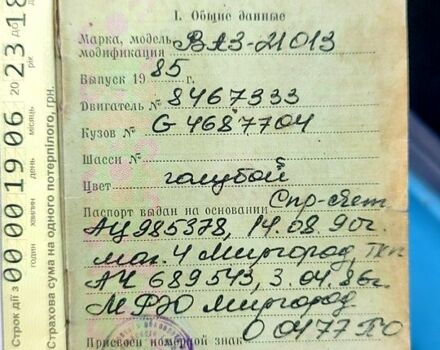 I. Общие данные
Марка, модель, модификация ВАЗ-21013
Выпуск 1985 г.
Двигатель № 8467333
Кузов № G4687704
Шасси №
Цвет голубой
Паспорт выдан на основании Спр-счет
АЦ 985378, 14.08.90г.
маг. 4 Миргород,
АЧ 689543, 3.04.86г.
МФЮ Миргород
Присвоен номерной знак О 0177 ПО
Строк дії з 00 00 19 06 20 23 18
годин хвилин день місяць рік до
Страхова сума на одного потерпілого, грн.